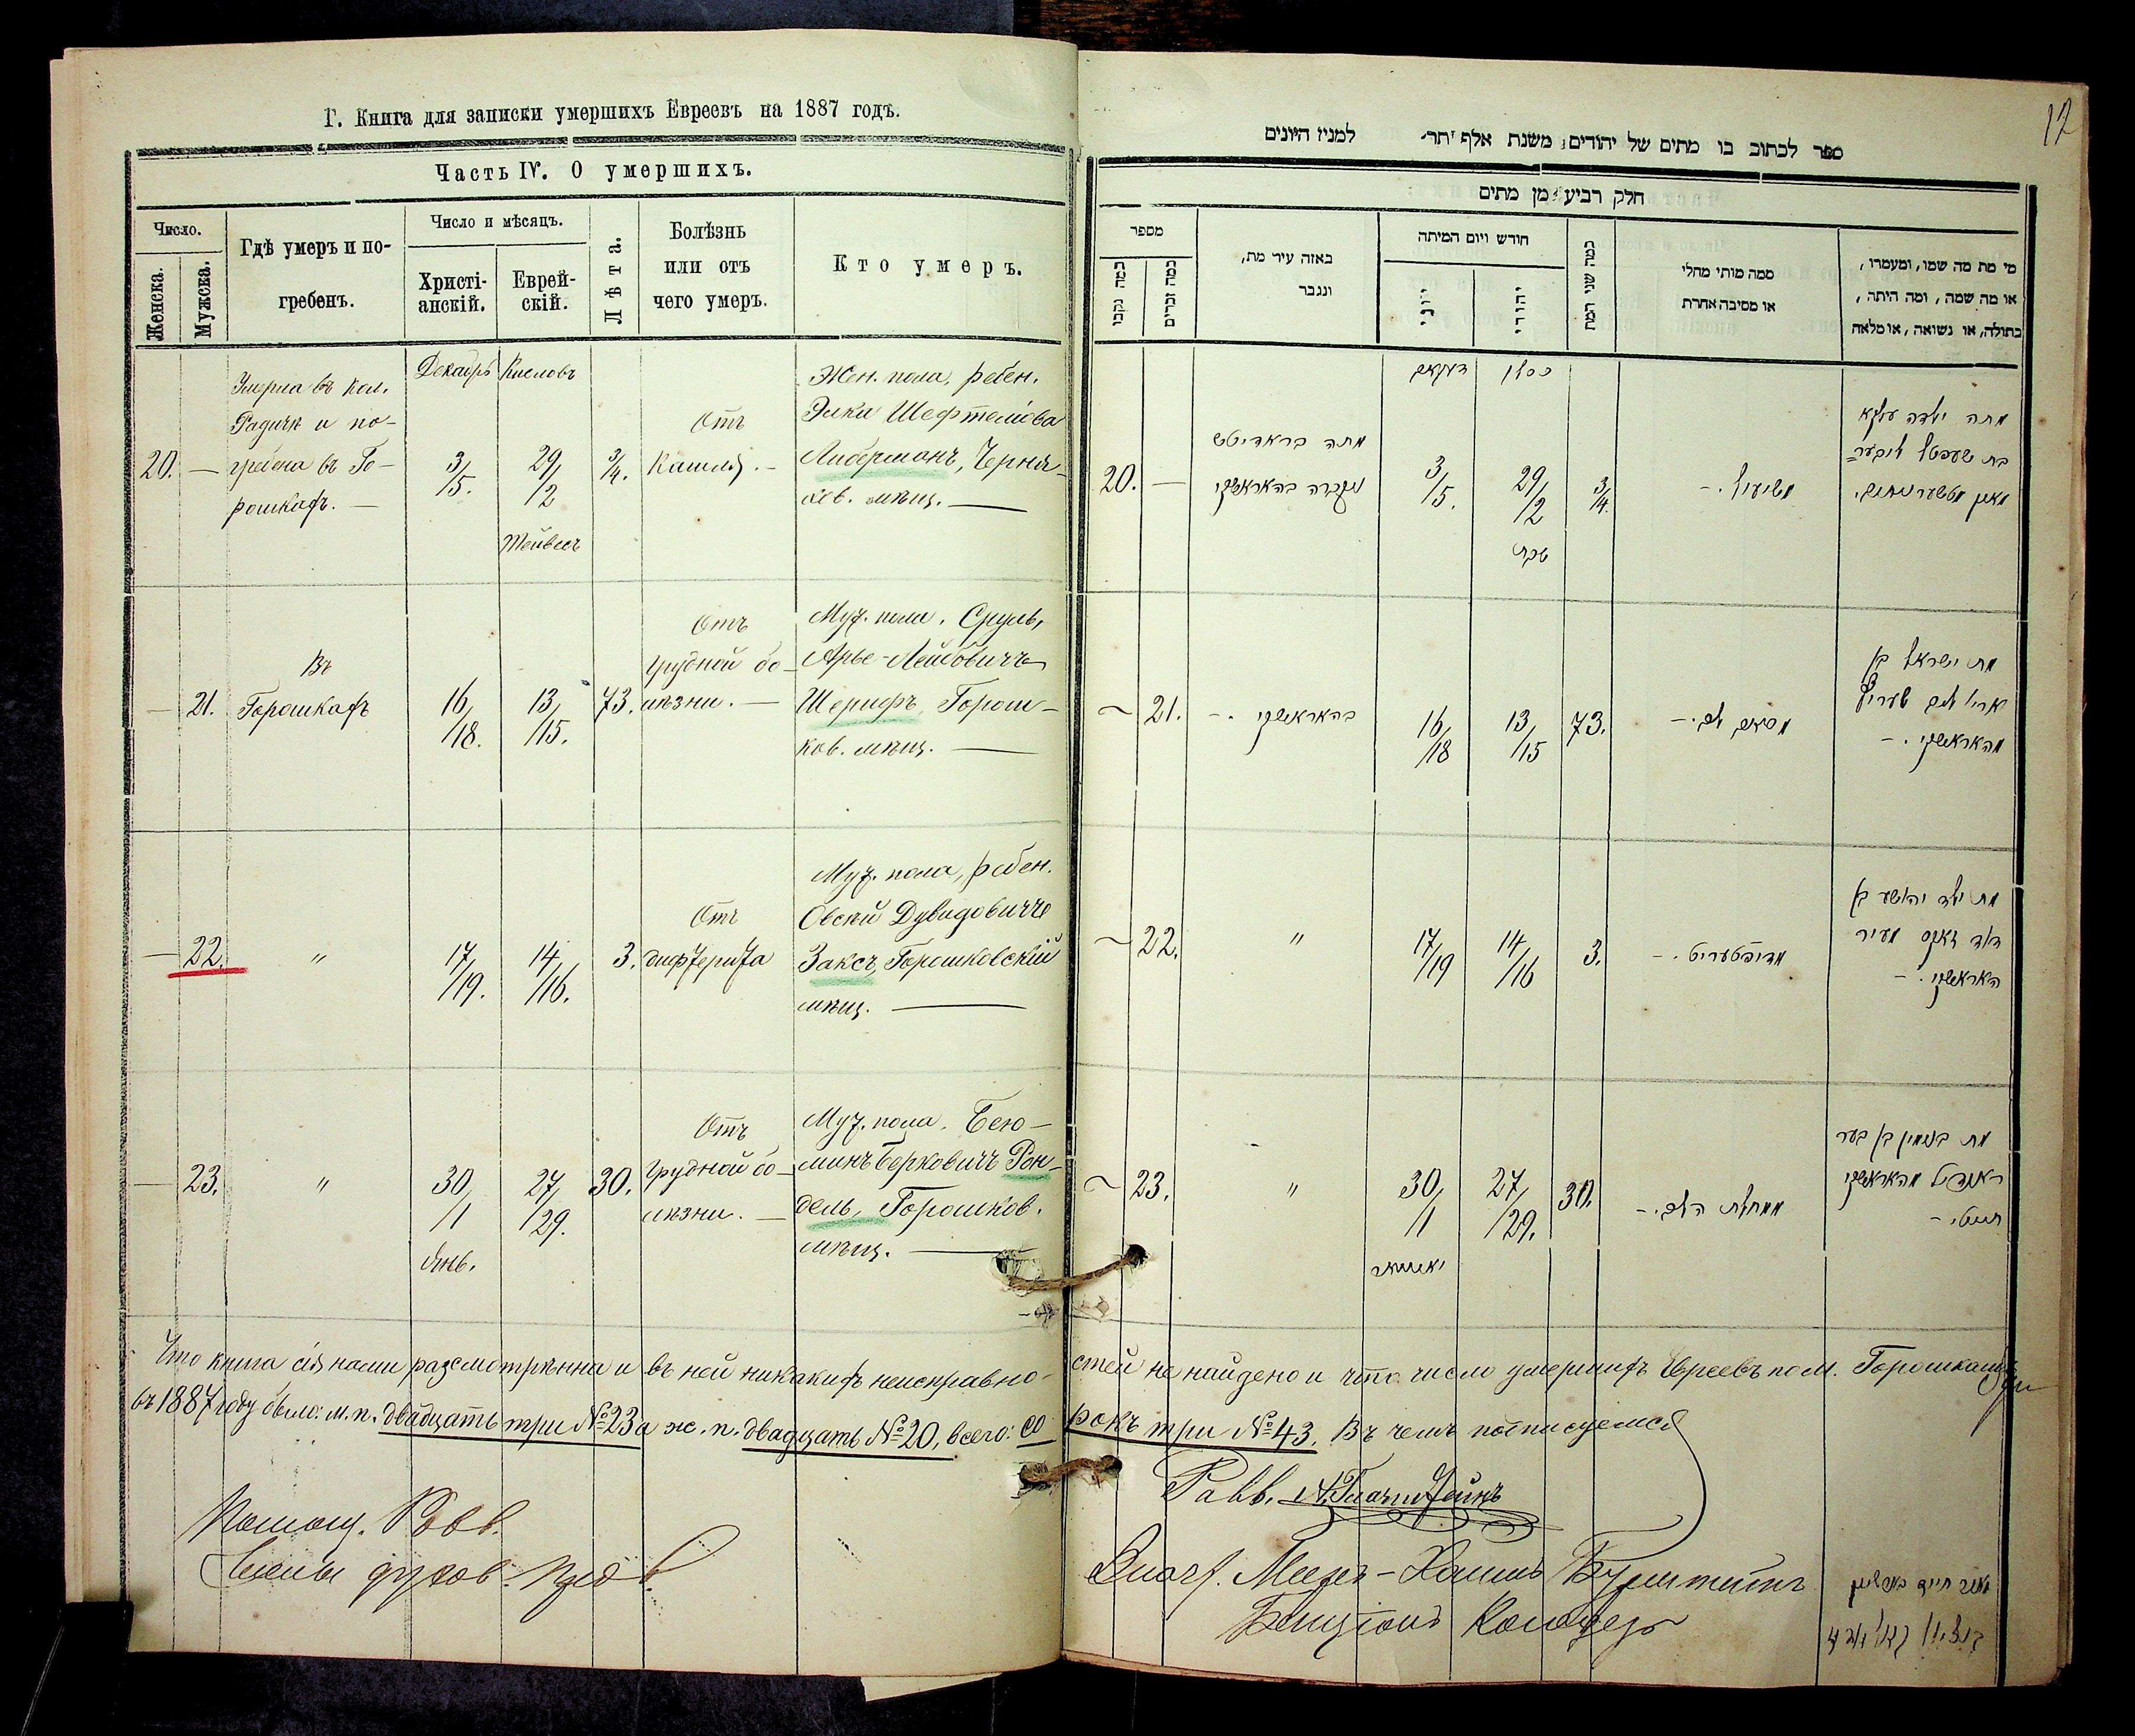 Г. Книга для записки умершихъ Евреевъ на 1887 годъ.
Часть IV. О умершихъ.
Число.
Женска.
Мужска.
Гдѣ умеръ и по-
гребенъ.
Число и мѣсяцъ.
Христі-
анскій.
Еврей-
скій.
Лѣта.
Болѣзнь
или отъ
чего умеръ.
Кто умеръ.
Декабрь
Кисловъ
20. —
Умерла въ кол.
и по-
гребена въ Го-
рошкахъ. —
3/
/5.
29/
/2
Тейвесъ
3/4.
Отъ
Кашля. —
Жен. пола, ребен.
Элки Шефтелiова
Либерманъ, Черня-
хов. мѣщ. —
— 21.
Въ
Горошкахъ
16/
/18.
13/
/15.
73.
Отъ
грудной бо-
лѣзни. —
Муж. пола. Сруль,
Арье-Лейбовичъ
Шерифъ, Горош-
ков. мѣщ. —
— 22.
"
17/
/19.
14/
/16.
3.
Отъ
дифтерита
Муж. пола, ребен.
Овсей Дувидовичъ
Заксъ, Горошковскій
мѣщ. —
— 23.
"
30/
/1
Янв.
27/
/29.
30.
Отъ
грудной бо-
лѣзни. —
Муж. пола. Беню-
минъ Берковичъ Рон-
дель, Горошков.
мѣщ. —
12
ספר לכתוב בו מתים של יהודים משנת אלף יתר למנין היונים
חלק רביעי מן מתים
מספר
כמה נקבי
כמה זכרים
באזה עיר מת,
ונגבר
חודש ויום המיתה
יוני
יהודי
כמה שני המת
סמה מותי מחלי
או מסיבה אחרת
מי מת מה שמו, ומעמדו,
או מה שמה, ומה היתה,
בתולה, או נשואה, או מלאה
דעקאבר
כסלו
20. —
מתה בראדיטש
נקברה בהאראשקי
3/
/5.
29/
/2
טבת
3/4.
מתה ילדה עלקא
בת שעפטל ליבער
מאן מטשערניחוב.
~ 21.
בהאראשקי. -
16/
/18
13/
/15
73.
מת ישראל בן
ארי' ליב שעריף
מהאראשקי. -
~ 22.
"
17/
/19
14/
/16
3.
מדיפטעריט. -
מת ילד יהושע בן
דוד זאקס מעיר
האראשקי. -
~ 23.
"
30/
/1
יאנואר
27/
/29.
30.
ממחלת הלב. -
מת בנימין בן בער
ראנדיל מהאראשקי
Что книга сія нами разсмотрѣнна и въ ней никакихъ неисправно-стей не найдено и что число умершихъ Евреевъ по м. Горошкамъ
въ 1887 году было: м. п. двадцать три №23 а ж. п. двадцать №20, всего: со рокъ три №43. Въ чемъ подписуемся
Равв.
Помощ. Равв.
Члены духов. прав.
Меерь-Хаимъ Бурштинъ
מאיר חיים בורשטין
Бенціонъ
בנציון